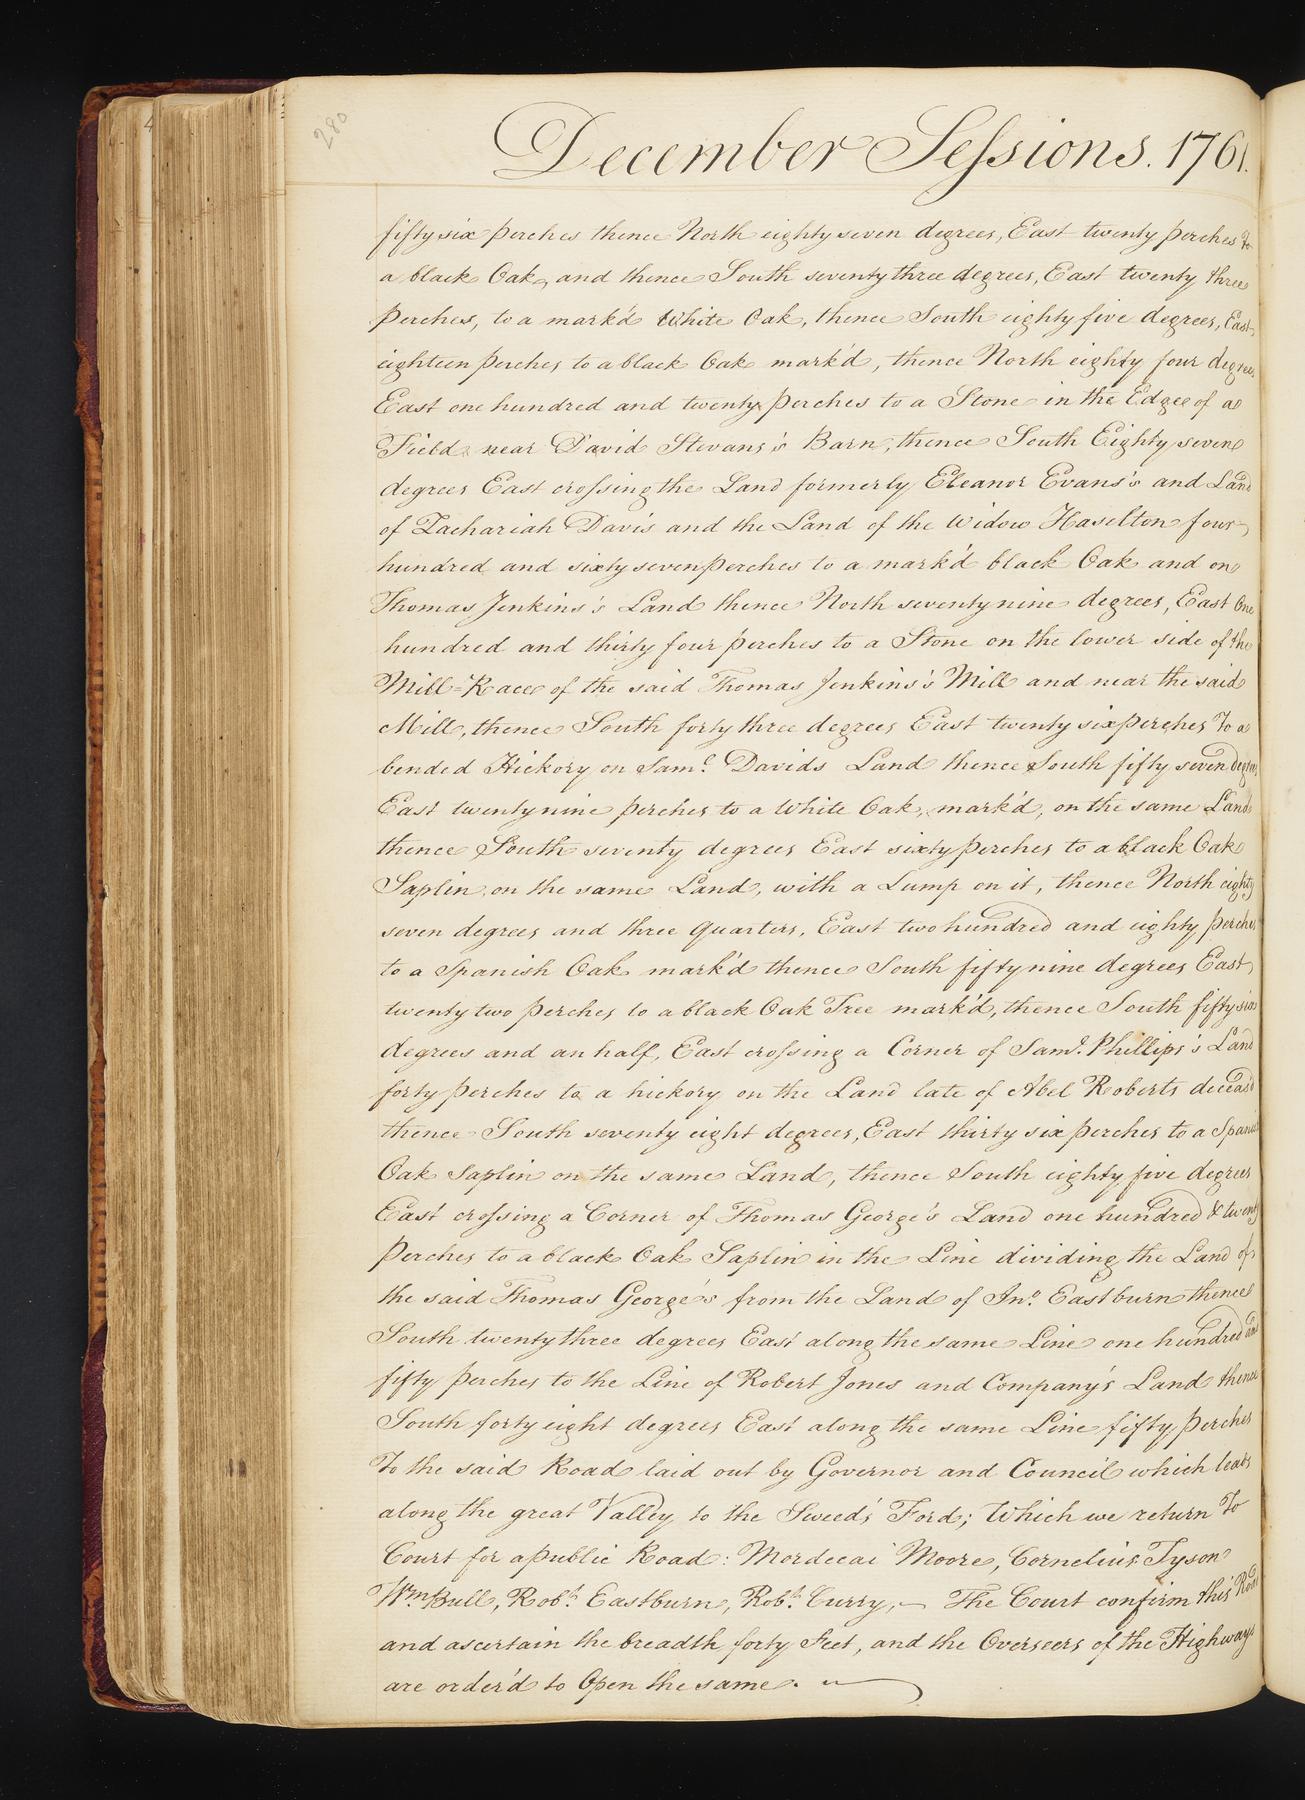 280
December Sessions. 1761.
fifty six perches thence North eighty seven degrees, East twenty perches to
a black Oak, and thence South seventy three degrees, East twenty three
perches, to a mark'd White Oak, thence South eighty five degrees, East,
eighteen perches to a black Oak mark'd, thence North eighty four degrees
East one hundred and twenty perches to a Stone in the Edge of a
Field near David Stevans's Barn, thence South Eighty seven
degrees East crossing the Land formerly Eleanor Evans's and Land
of Zachariah Davis and the Land of the Widow Haselton four
hundred and sixty seven perches to a mark'd black Oak and on
Thomas Jenkins's Land thence North seventy nine degrees, East One
hundred and thirty four perches to a Stone on the lower side of the
Mill=Race of the said Thomas Jenkins's Mill and near the said
Mill, thence South forty three degrees East twenty six perches To a
bended Hickory on Saml. Davids Land thence South fifty seven degrees
East twenty nine perches to a White Oak, mark'd, on the same Land
thence South seventy degrees East sixty perches to a black Oak
Saplin, on the same Land, with a Lump on it, thence North eighty
seven degrees and three quarters, East two hundred and eighty perches
to a Spanish Oak mark'd thence South fifty nine degrees East,
twenty two perches to a black Oak Tree mark'd, thence South fifty six
degrees and an half, East crossing a Corner of Saml. Phillips's Land
forty perches to a hickory on the Land late of Abel Roberts deceas'd
thence South seventy eight degrees, East thirty six perches to a Spanish
Oak Saplin on the same Land, thence South eighty five degrees
East crossing a Corner of Thomas George's Land one hundred & twenty
Perches to a black Oak Saplin in the Line dividing the Land of
the said Thomas George's from the Land of Jno. Eastburn thence
South twenty three degrees East along the same Line one hundred and
fifty perches to the Line of Robert Jones and Company's Land thence
South forty eight degrees East along the same Line fifty perches
To the said Road laid out by Governor and Council which leads
along the great Valley to the Sweed's Ford; Which we return To
Court for a public Road: Mordecai Moore, Cornelius Tyson
Wm Bull, Robt. Eastburn, Robt. Curry, — The Court confirm this Road
and ascertain the breadth forty Feet, and the Overseers of the Highways
are order'd to Open the same.